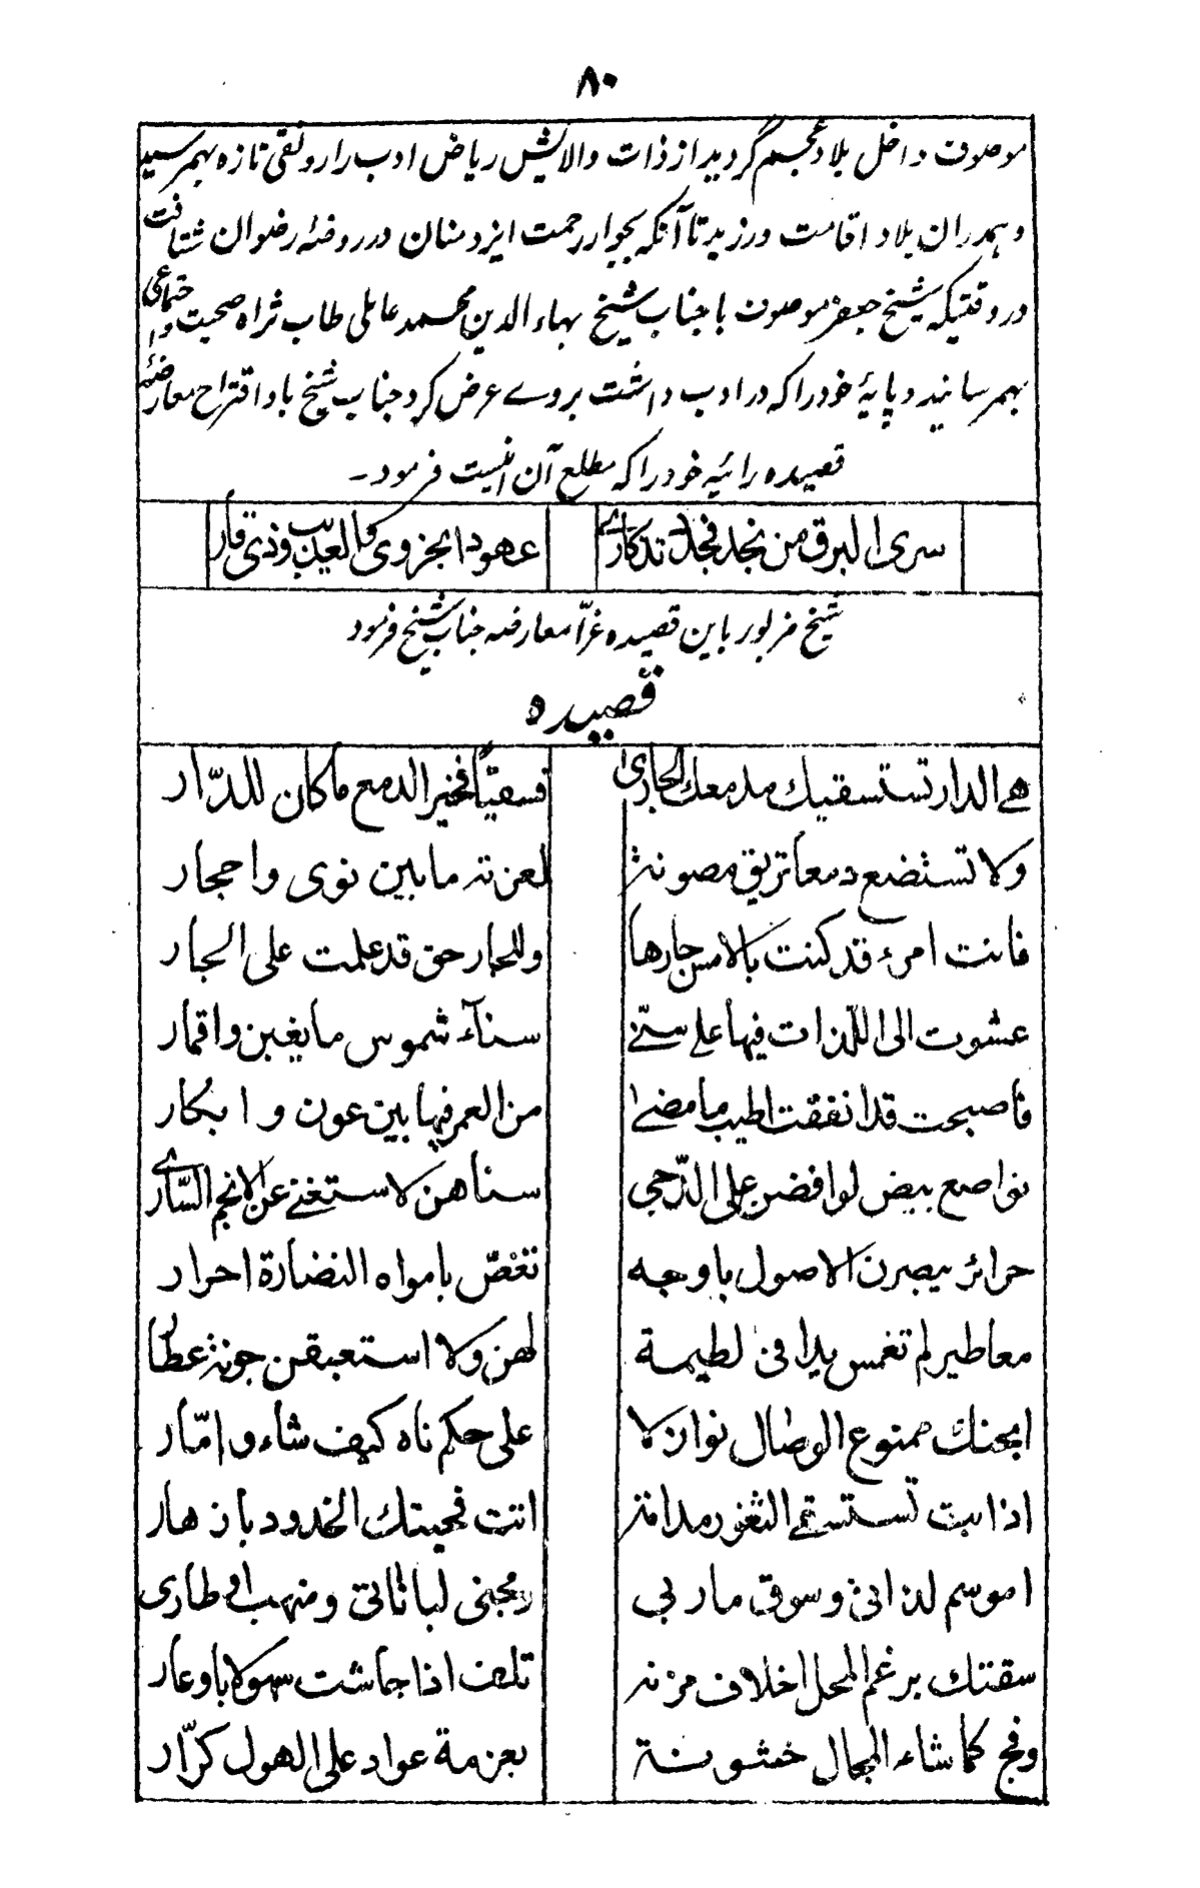 ۸۰
موصوف داخل بلاد عجم گردید از ذات والایش ریاض ادب را رونقی تازه بهمرسید
و همدران بلاد اقامت ورزید تا آنکه بجوار رحمت ایزد منان در روضۂ رضوان شتافت
در وقتیکہ شیخ جعفر موصوف با جناب شیخ بهاء الدین محمد عاملی طاب ثراه صحبت و اجتماعی
بهمرسانید و پایۂ خود را که در ادب داشت بروے عرض کرد جناب شیخ باو اقتراح معارضۂ
قصیده رائیہ خود را که مطلع آن اینست فرمود۔
سری البرق من نجد فجدد تذکاری عهودا بحزوی والعذیب وذی قار
شیخ مزبور باین قصیده غرّا معارضه جناب شیخ فرمود
قصیده
هی الدار تستسقیك مدمعك الجاری فسقیًا فخیر الدمع ماکان للدّار
ولا تستضع دمعا تریق مصونہ لعزتہ مابین نوی واحجار
فانت امرء قد کنت بالامس جارها وللجار حق قد علمت علی الجار
عشوت الی اللذات فیها علی سنے سناء شموس ما یغبن واقمار
فاصبحت قد انفقت اطیب ما مضے من العمر فیها بین عون وابکار
نواصع بیض لو افضن علی الدّجی سناهن لاستغنے عن الانجم السّارے
حرائر یبصرن الاصول باوجه تغصّ بامواه النضارة احرار
معاطیر لم تغمس یدا فی لطیمة لهن ولا استعبقن جونة عطار
ابحنك ممنوع الوصال نوازلا علی حکم ناه کیف شاء وامّار
اذا بت تستسقے الثغور مدامة اتت فحیتك الخدود بازهار
اموسم لذاتی وسوق مآربی ومجنی لباناتی ومنهب اوطاری
سقتك برغم المحل اخلاف مزنہ تلف اذا جاشت سهولا باوعار
وفج کما شاء المجال خشونة بعزمة عواد علی الهول کرّار